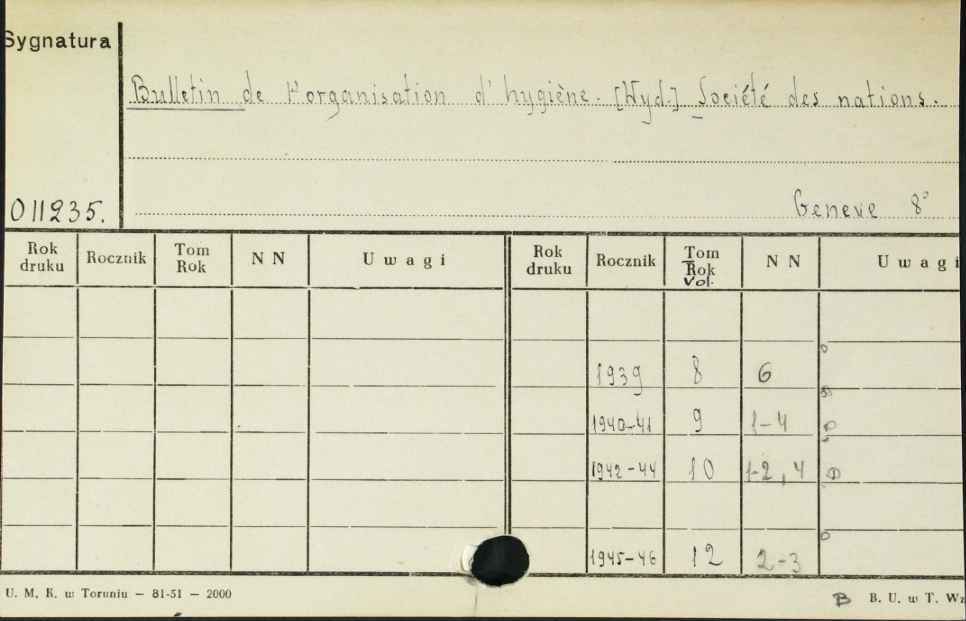 Sygnatura
Bulletin de l'organisation d'hygiène. [Wyd.] Société des nations.
011235.
Geneve 8°
Rok druku Rocznik Tom Rok N N Uwagi Rok druku Rocznik Tom Rok Vol. N N Uwagi
1939 8 6
1940-41 9 1-4
1942-44 10 1-2, 4
1945-46 12 2-3
U. M. K. w Toruniu — 81-51 — 2000
B B. U. w T. Wz